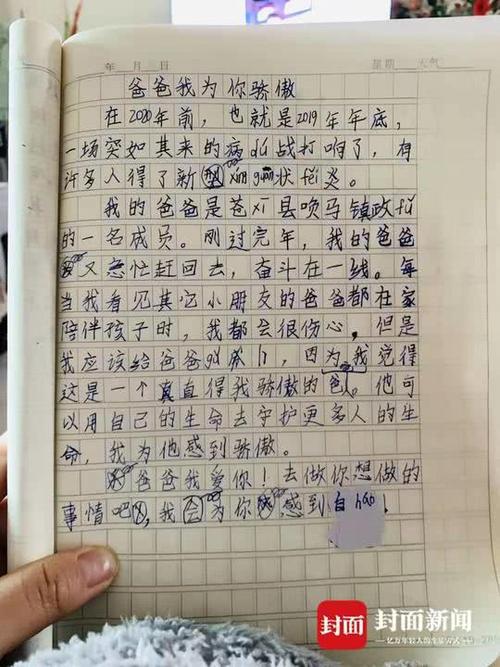 年 月 日 星期 天气
爸爸我为你骄傲
在2020年前，也就是2019年年底，
一场突如其来的病dú战打响了，有
许多人得了新型xīn guān状fèi炎。
我的爸爸是苍xī县唤马镇政fǔ
的一名成员。刚过完年，我的爸爸
又急忙赶回去，奋斗在一线。每
当我看见其它小朋友的爸爸都在家
陪伴孩子时，我都会很伤心，但是
我应该给爸爸gǔ，因为我觉得
这是一个真直得我骄傲的爸。他可
以用自己的生命去守护更多人的生
命，我为他感到骄傲。
爸爸我爱你！去做你想做的
事情吧，我会为你感到自háo！
封面 封面新闻
亿万年轻人的生活方式